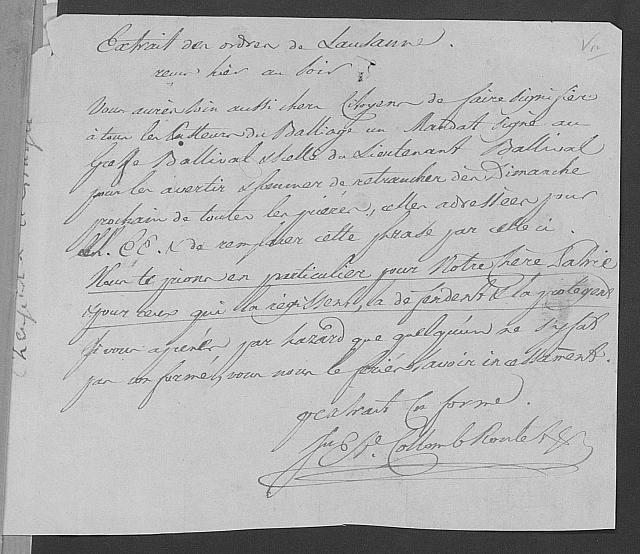 Extrait des ordres de Lausanne.
reçus hier au soir
Vous aurés soin aussi chers Citoyens de faire signifier
à tous les Pasteurs du Balliage un Mandat signé au
Greffe Ballival & scellé du Lieutenant Ballival
pour les avertir & sommer de retrancher dès Dimanche
prochain de toutes les prieres, celles adressées pour
LL. EE. & de remplacer cette phrase par celle ci.
Nous te prions en particulier pour Notre Chere Patrie
& pour ceux qui la régissent, la défendent & la protégent
Si vous aprenés par hazard que quelqu'un ne s'y soit
pas conformé, vous nous le ferés savoir incessamment.
p.r extrait conforme.
Collomb Roulet